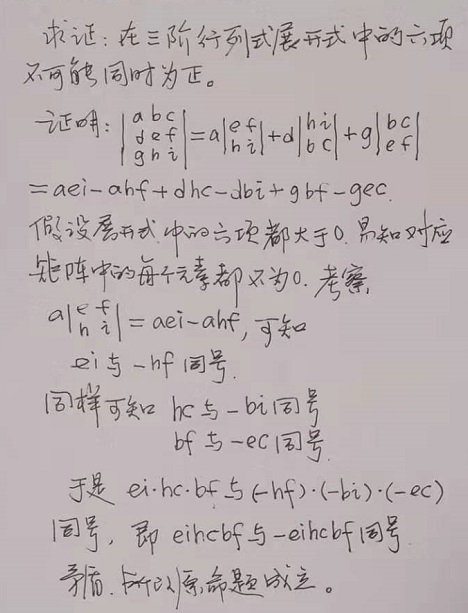 求证：在三阶行列式展开式中的六项
不可能同时为正。
证明：|a b c; d e f; g h i| = a|e f; h i| + d|h i; b c| + g|b c; e f|
= aei - ahf + dhc - dbi + gbf - gec.
假设展开式中的六项都大于0.易知对应
矩阵中的每个元素都不为0.考察,
a|e f; h i| = aei - ahf, 可知
ei与-hf同号.
同样可知 hc与-bi同号
bf与-ec同号.
于是 ei·hc·bf与(-hf)·(-bi)·(-ec)
同号，即 eihcbf与-eihcbf同号
矛盾.所以原命题成立。